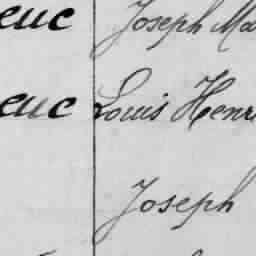 euc Joseph Ma
euc Louis Henri
Joseph